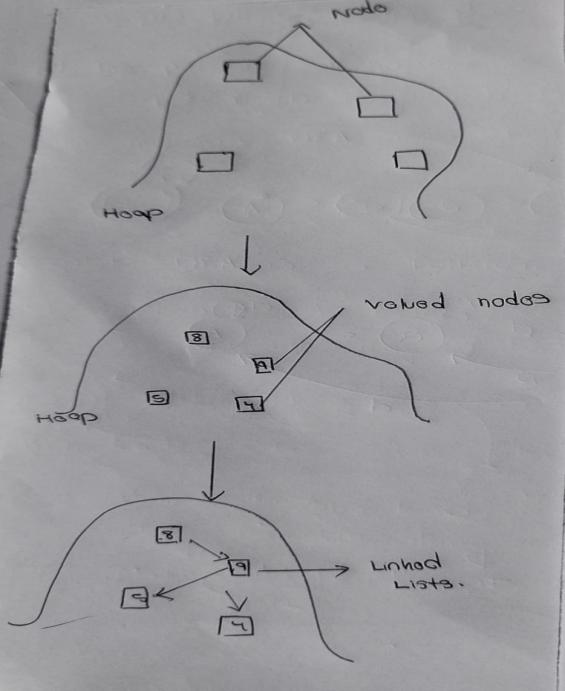 Node
Heap
Valued nodes
8
9
5
4
Heap
8
9
Linked
Lists.
5
4